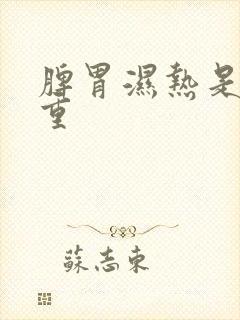 脾胃濕熱是
重
蘇志東